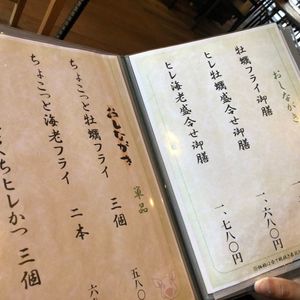 おしながき
牡蠣フライ御膳
ヒレ牡蠣盛合せ御膳 一、六八〇円
ヒレ海老盛合せ御膳 一、七八〇円
おしながき
単品
ちょこっと牡蠣フライ 三個 五八
ちょこっと海老フライ 二本 六
くちヒレかつ 三個